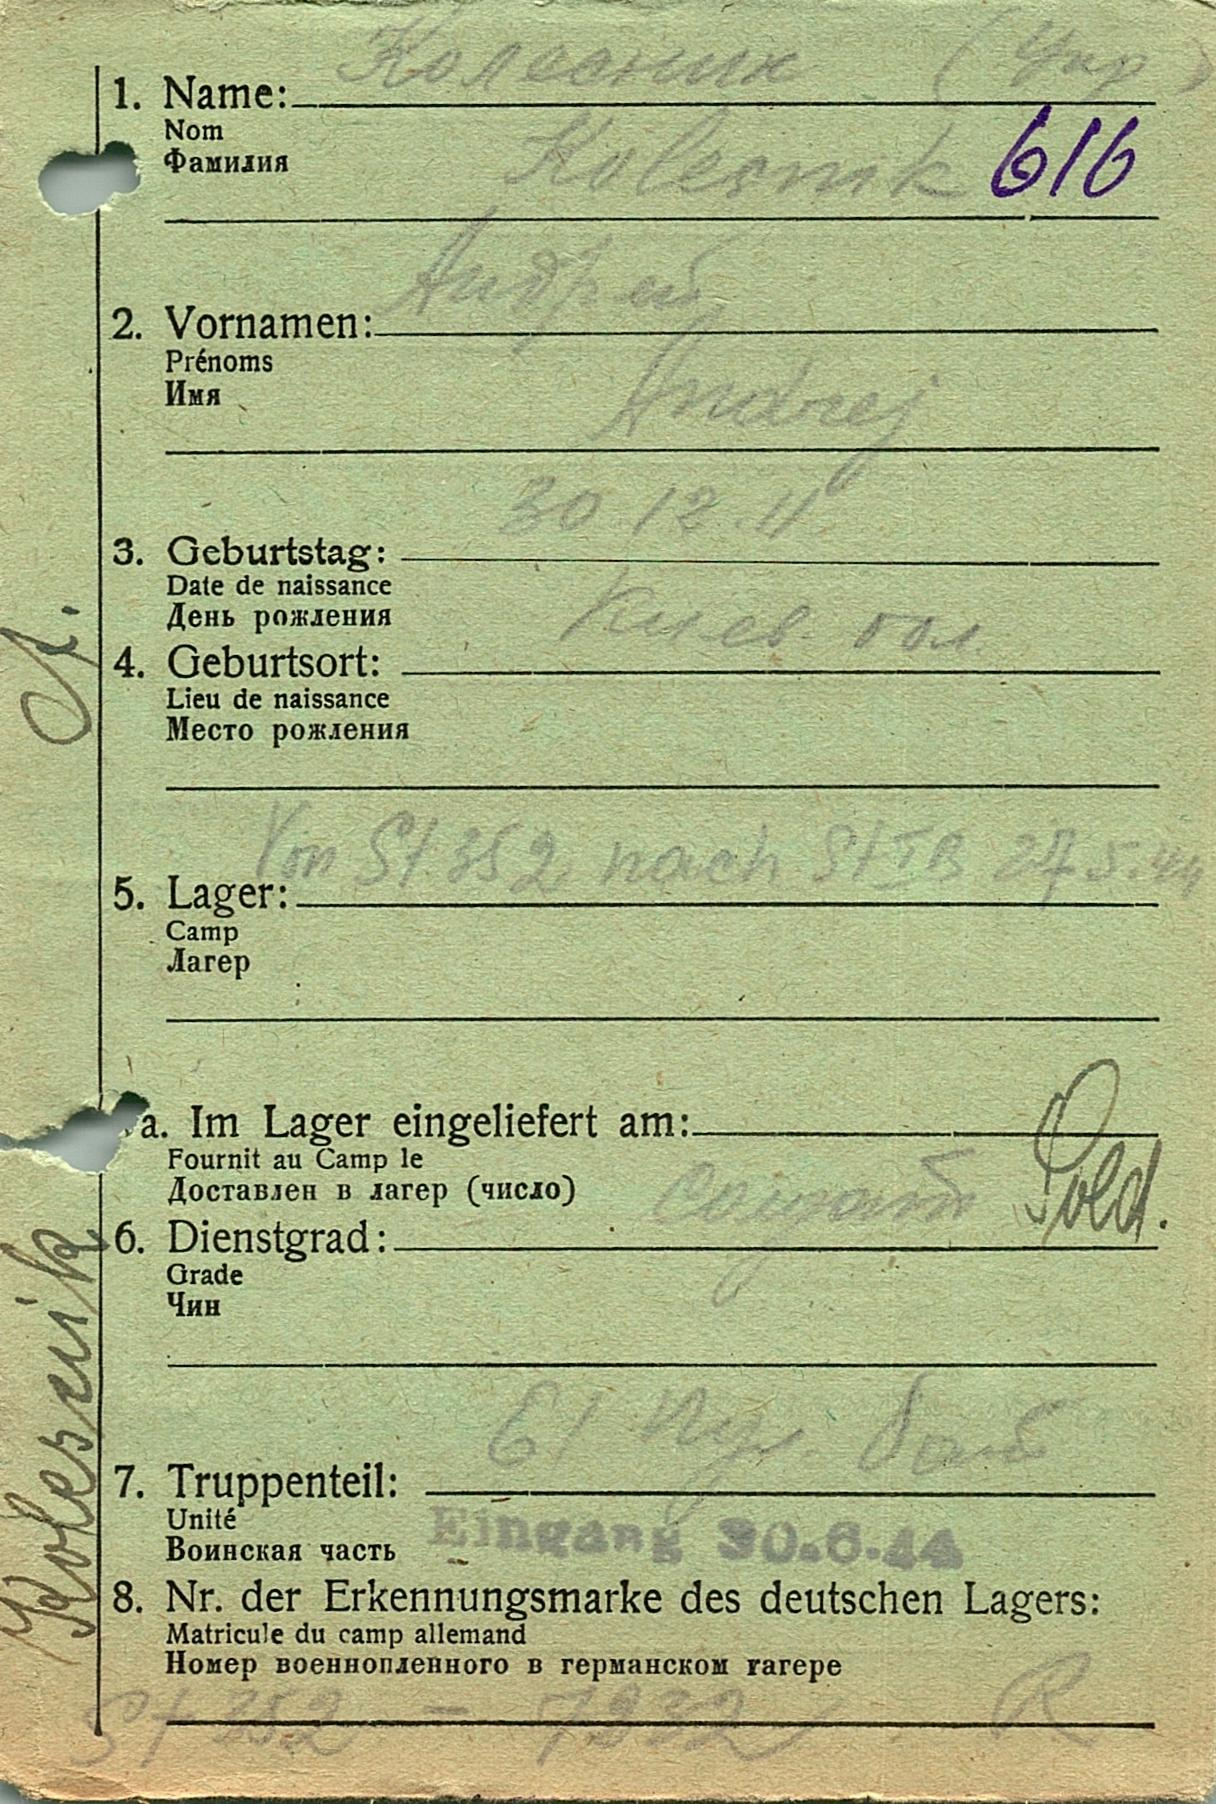 Колесник (Укр)
1. Name:
Nom
Фамилия
Kolesnik 616
Андрей
2. Vornamen:
Prénoms
Имя
Andrej
30 12.11
3. Geburtstag:
Date de naissance
День рождения
Киев. обл.
4. Geburtsort:
Lieu de naissance
Место рождения
Von St 352 nach St IB 27.5.44
5. Lager:
Camp
Лагер
a. Im Lager eingeliefert am:
Fournit au Camp le
Доставлен в лагер (число)
солдат Sold.
6. Dienstgrad:
Grade
Чин
61 пул. бат
7. Truppenteil:
Unité
Воинская часть
Eingang 30.6.44
8. Nr. der Erkennungsmarke des deutschen Lagers:
Matricule du camp allemand
Номер военнопленного в германском гагере
St 352 - 7932 R
Kolesnik A.